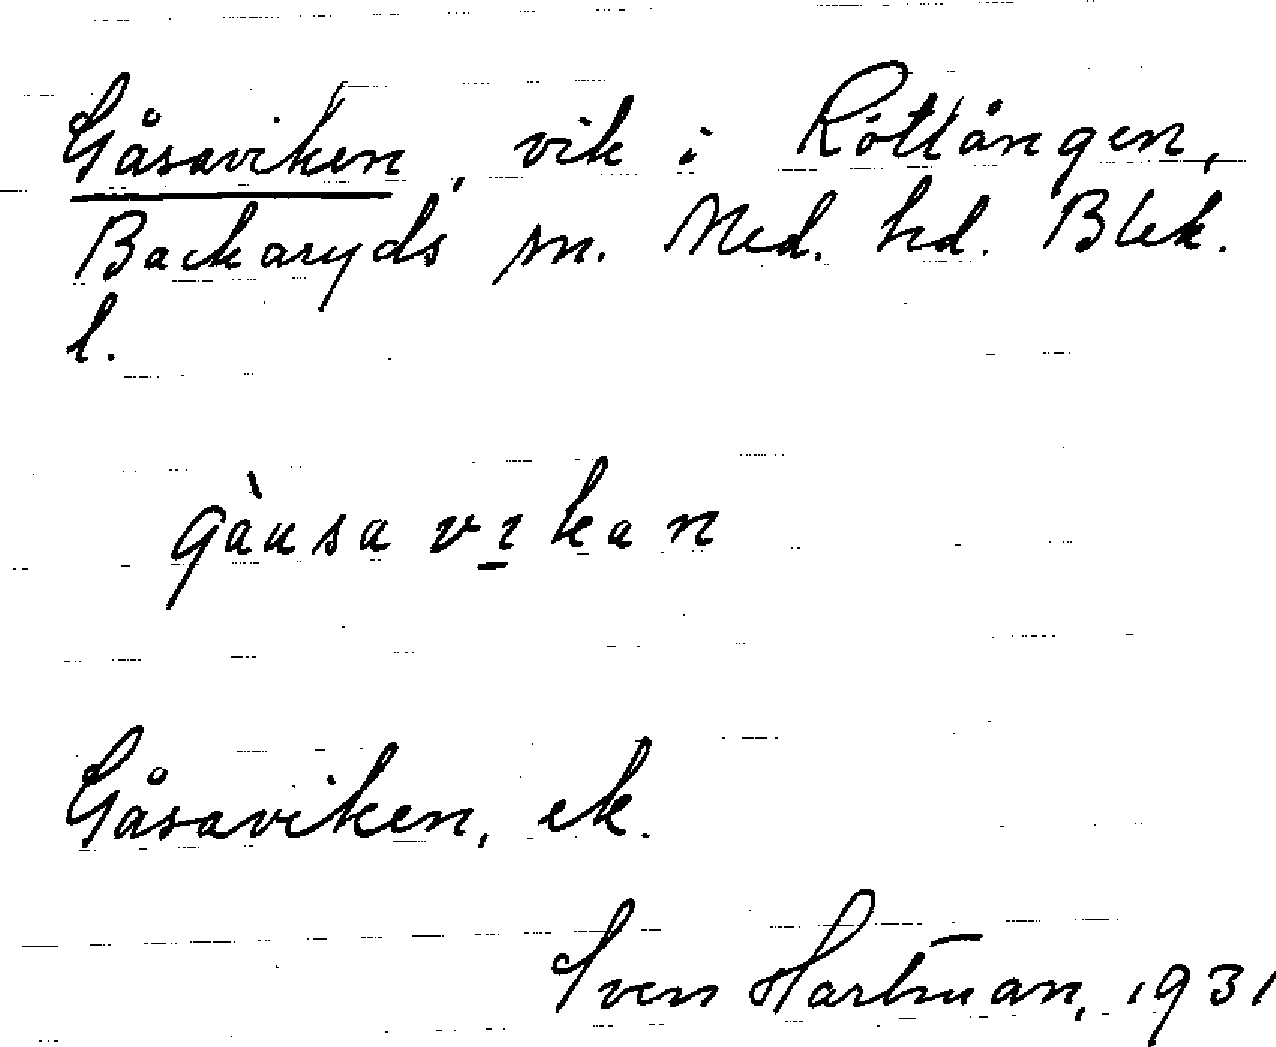 Gåsaviken, vik i Röttången,
Backaryds sn. Med. hd. Blek.
l.
gàusa vıkan
Gåsaviken, ek.
Sven Hartman, 1931